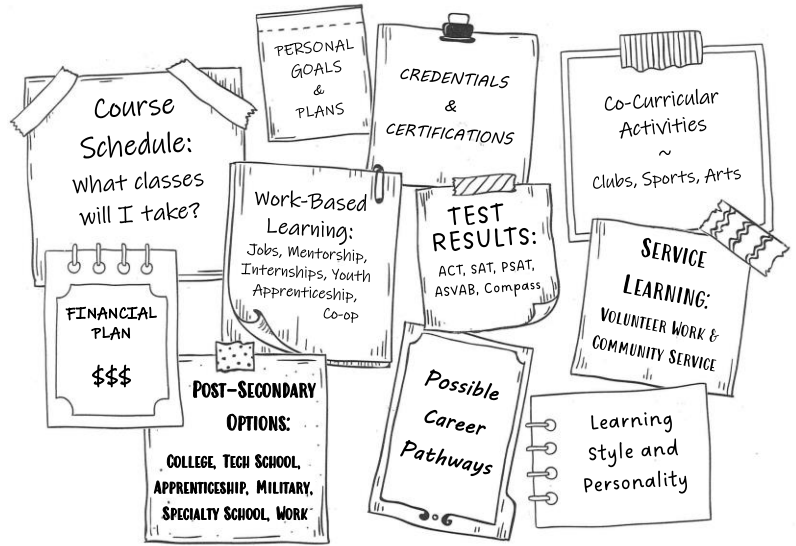 PERSONAL
GOALS
&
PLANS
CREDENTIALS
&
CERTIFICATIONS
Co-Curricular
Activities
~
Clubs, Sports, Arts
Course
Schedule:
What classes
will I take?
Work-Based
Learning:
Jobs, Mentorship,
Internships, Youth
Apprenticeship,
Co-op
TEST
RESULTS:
ACT, SAT, PSAT,
ASVAB, Compass
SERVICE
LEARNING:
VOLUNTEER WORK &
COMMUNITY SERVICE
FINANCIAL
PLAN
$$$
POST-SECONDARY
OPTIONS:
COLLEGE, TECH SCHOOL,
APPRENTICESHIP, MILITARY,
SPECIALTY SCHOOL, WORK
Possible
Career
Pathways
Learning
Style and
Personality